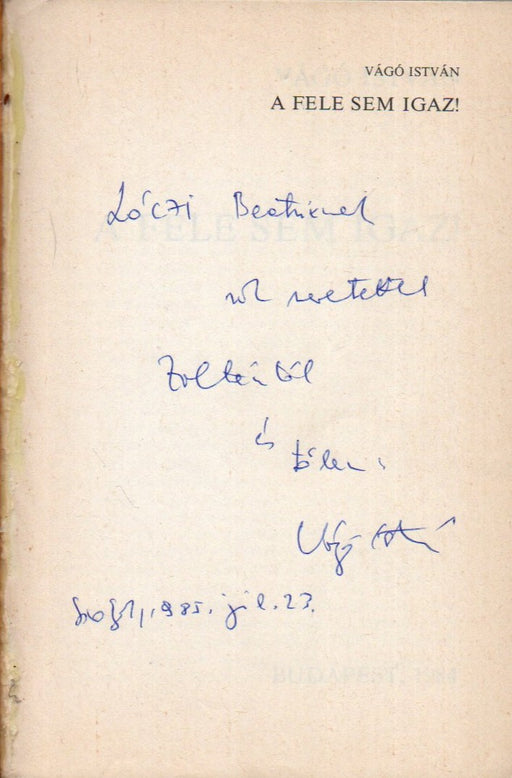 VÁGÓ ISTVÁN
A FELE SEM IGAZ!
Lóczi Beatrixnek
sok szeretettel
Zoltántól
és
tőlem:
Vágó István
1985. júl. 23.